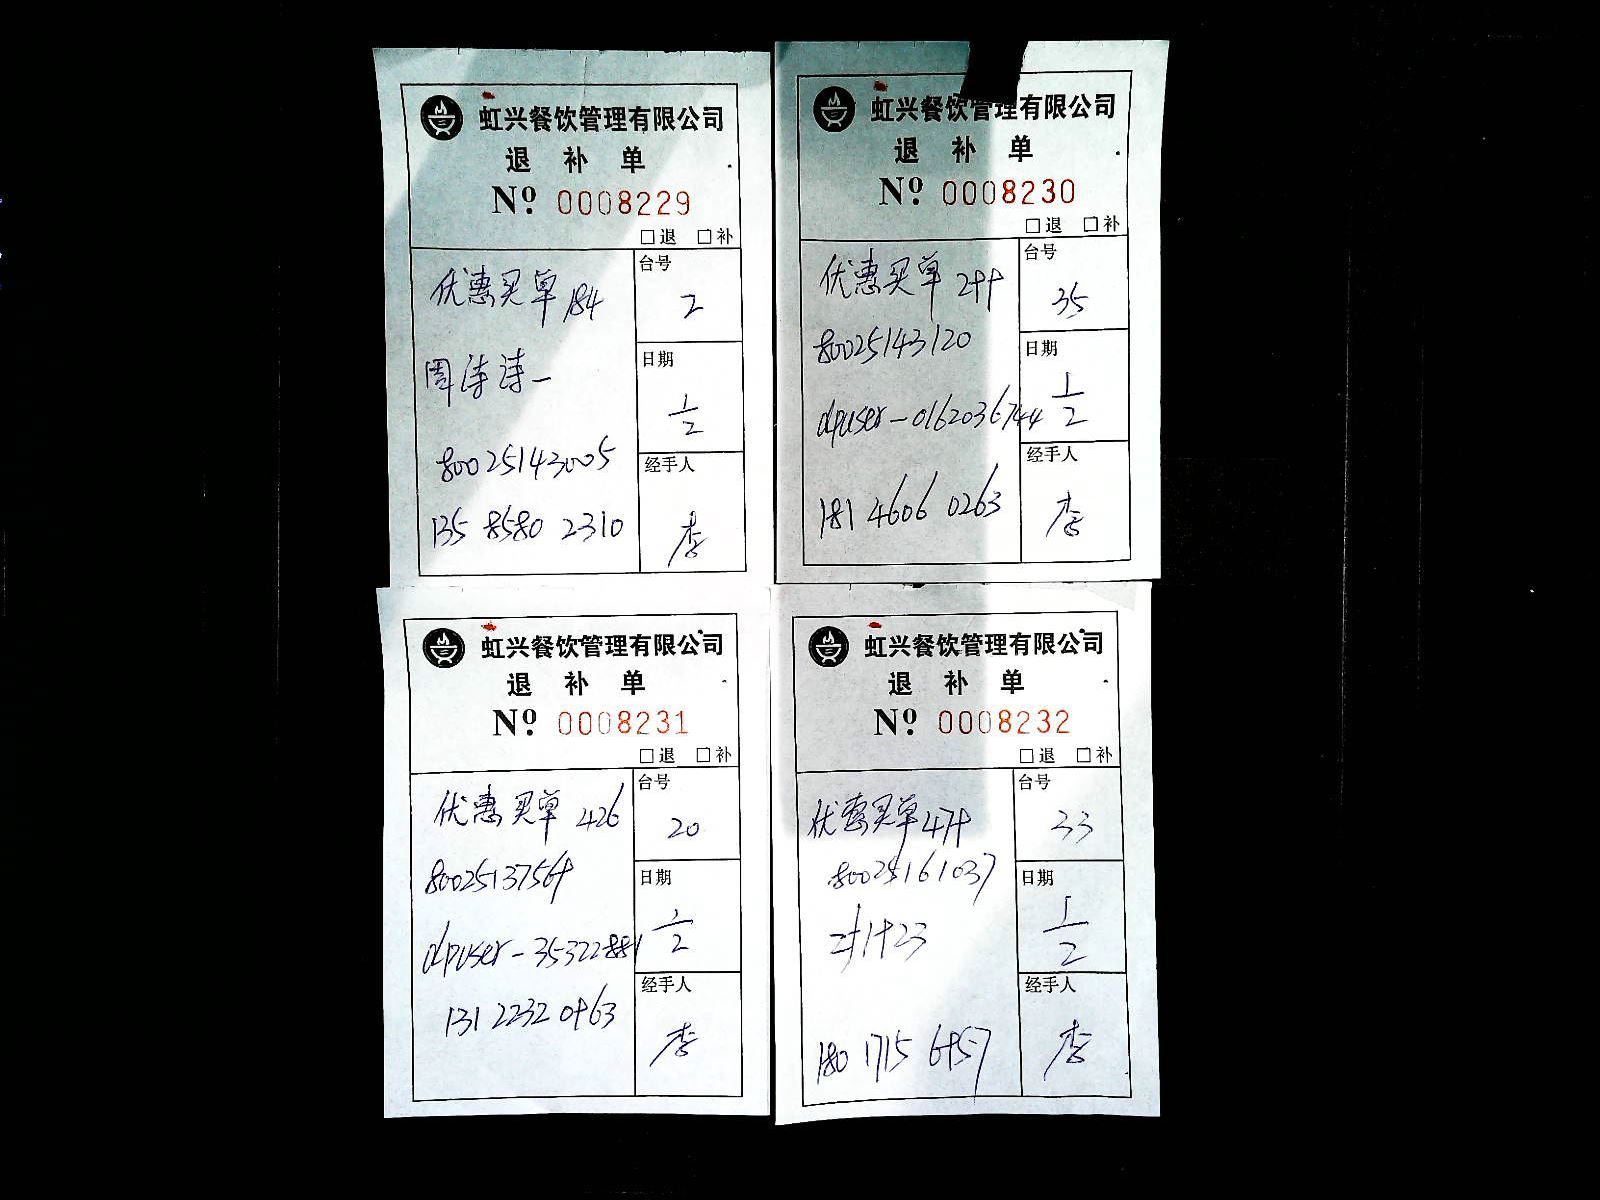 虹兴餐饮管理有限公司
退 补 单
Nº. 0008229
□退 □补
优惠买单 184
周涛涛一
80025143005
135 8580 2310
台号
2
日期
1/2
经手人
李
虹兴餐饮管理有限公司
退 补 单
Nº. 0008230
□退 □补
优惠买单
80025143120
dpuser-0162036744
181 4606 0263
台号
35
日期
1/2
经手人
李
虹兴餐饮管理有限公司
退 补 单
Nº. 0008231
□退 □补
优惠买单 426
dpuser-35322881
131 2232 0963
台号
20
日期
1/2
经手人
李
虹兴餐饮管理有限公司
退 补 单
Nº. 0008232
□退 □补
优惠买单 479
80025161037
180 1715 6957
台号
33
日期
1/2
经手人
李